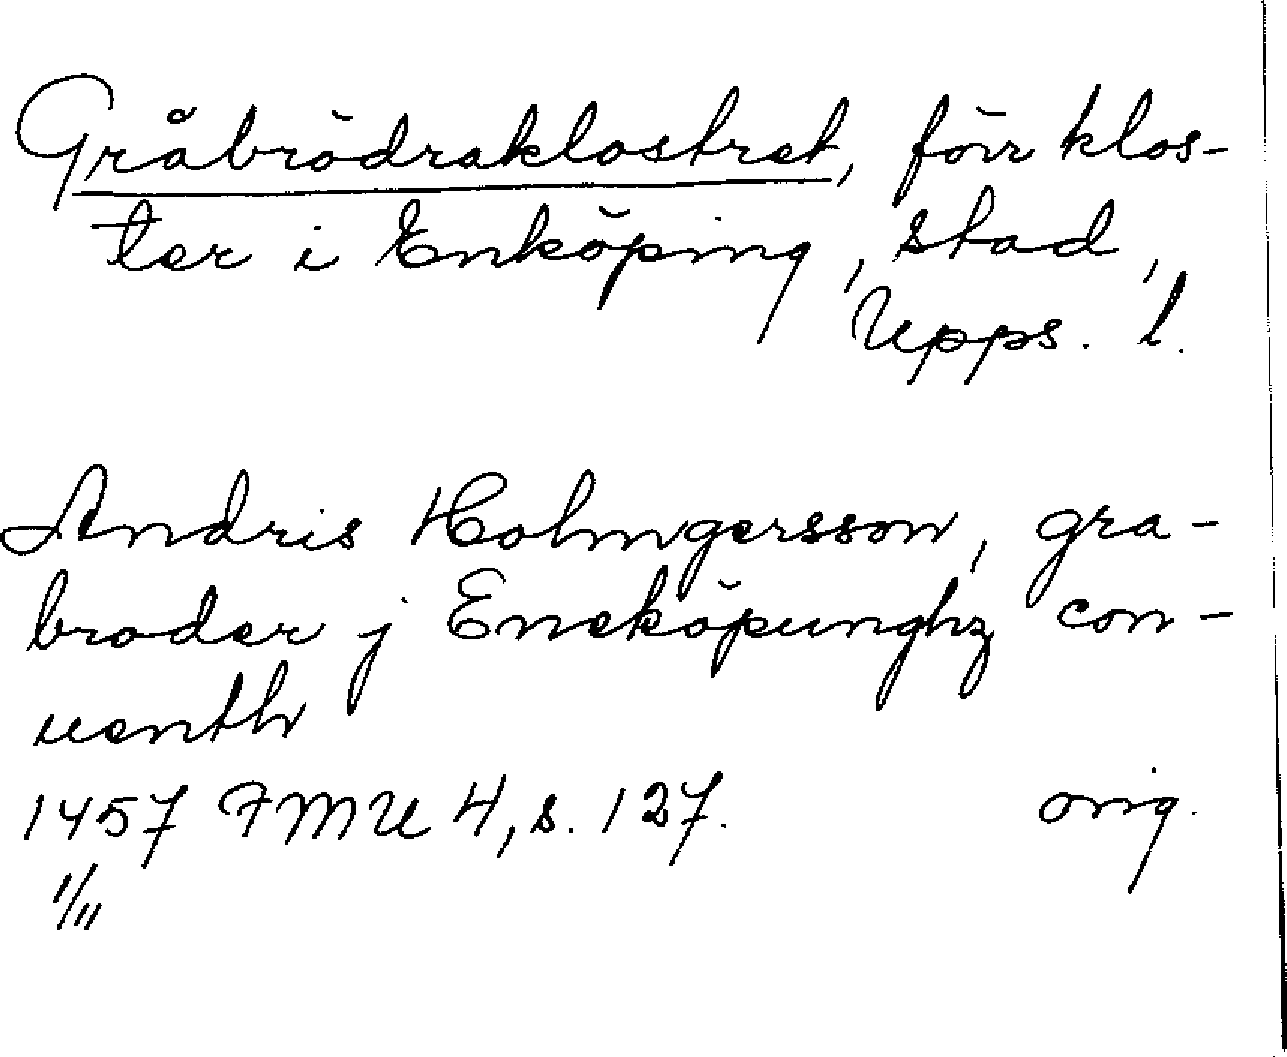 Gråbrödraklostret, förr klos-
ter i Enköping, stad,
Upps. l.
Andris Holmgersson, gra-
broder j Eneköpunghz con-
uenth
1457 FMU 4, s. 127. orig.
1/11